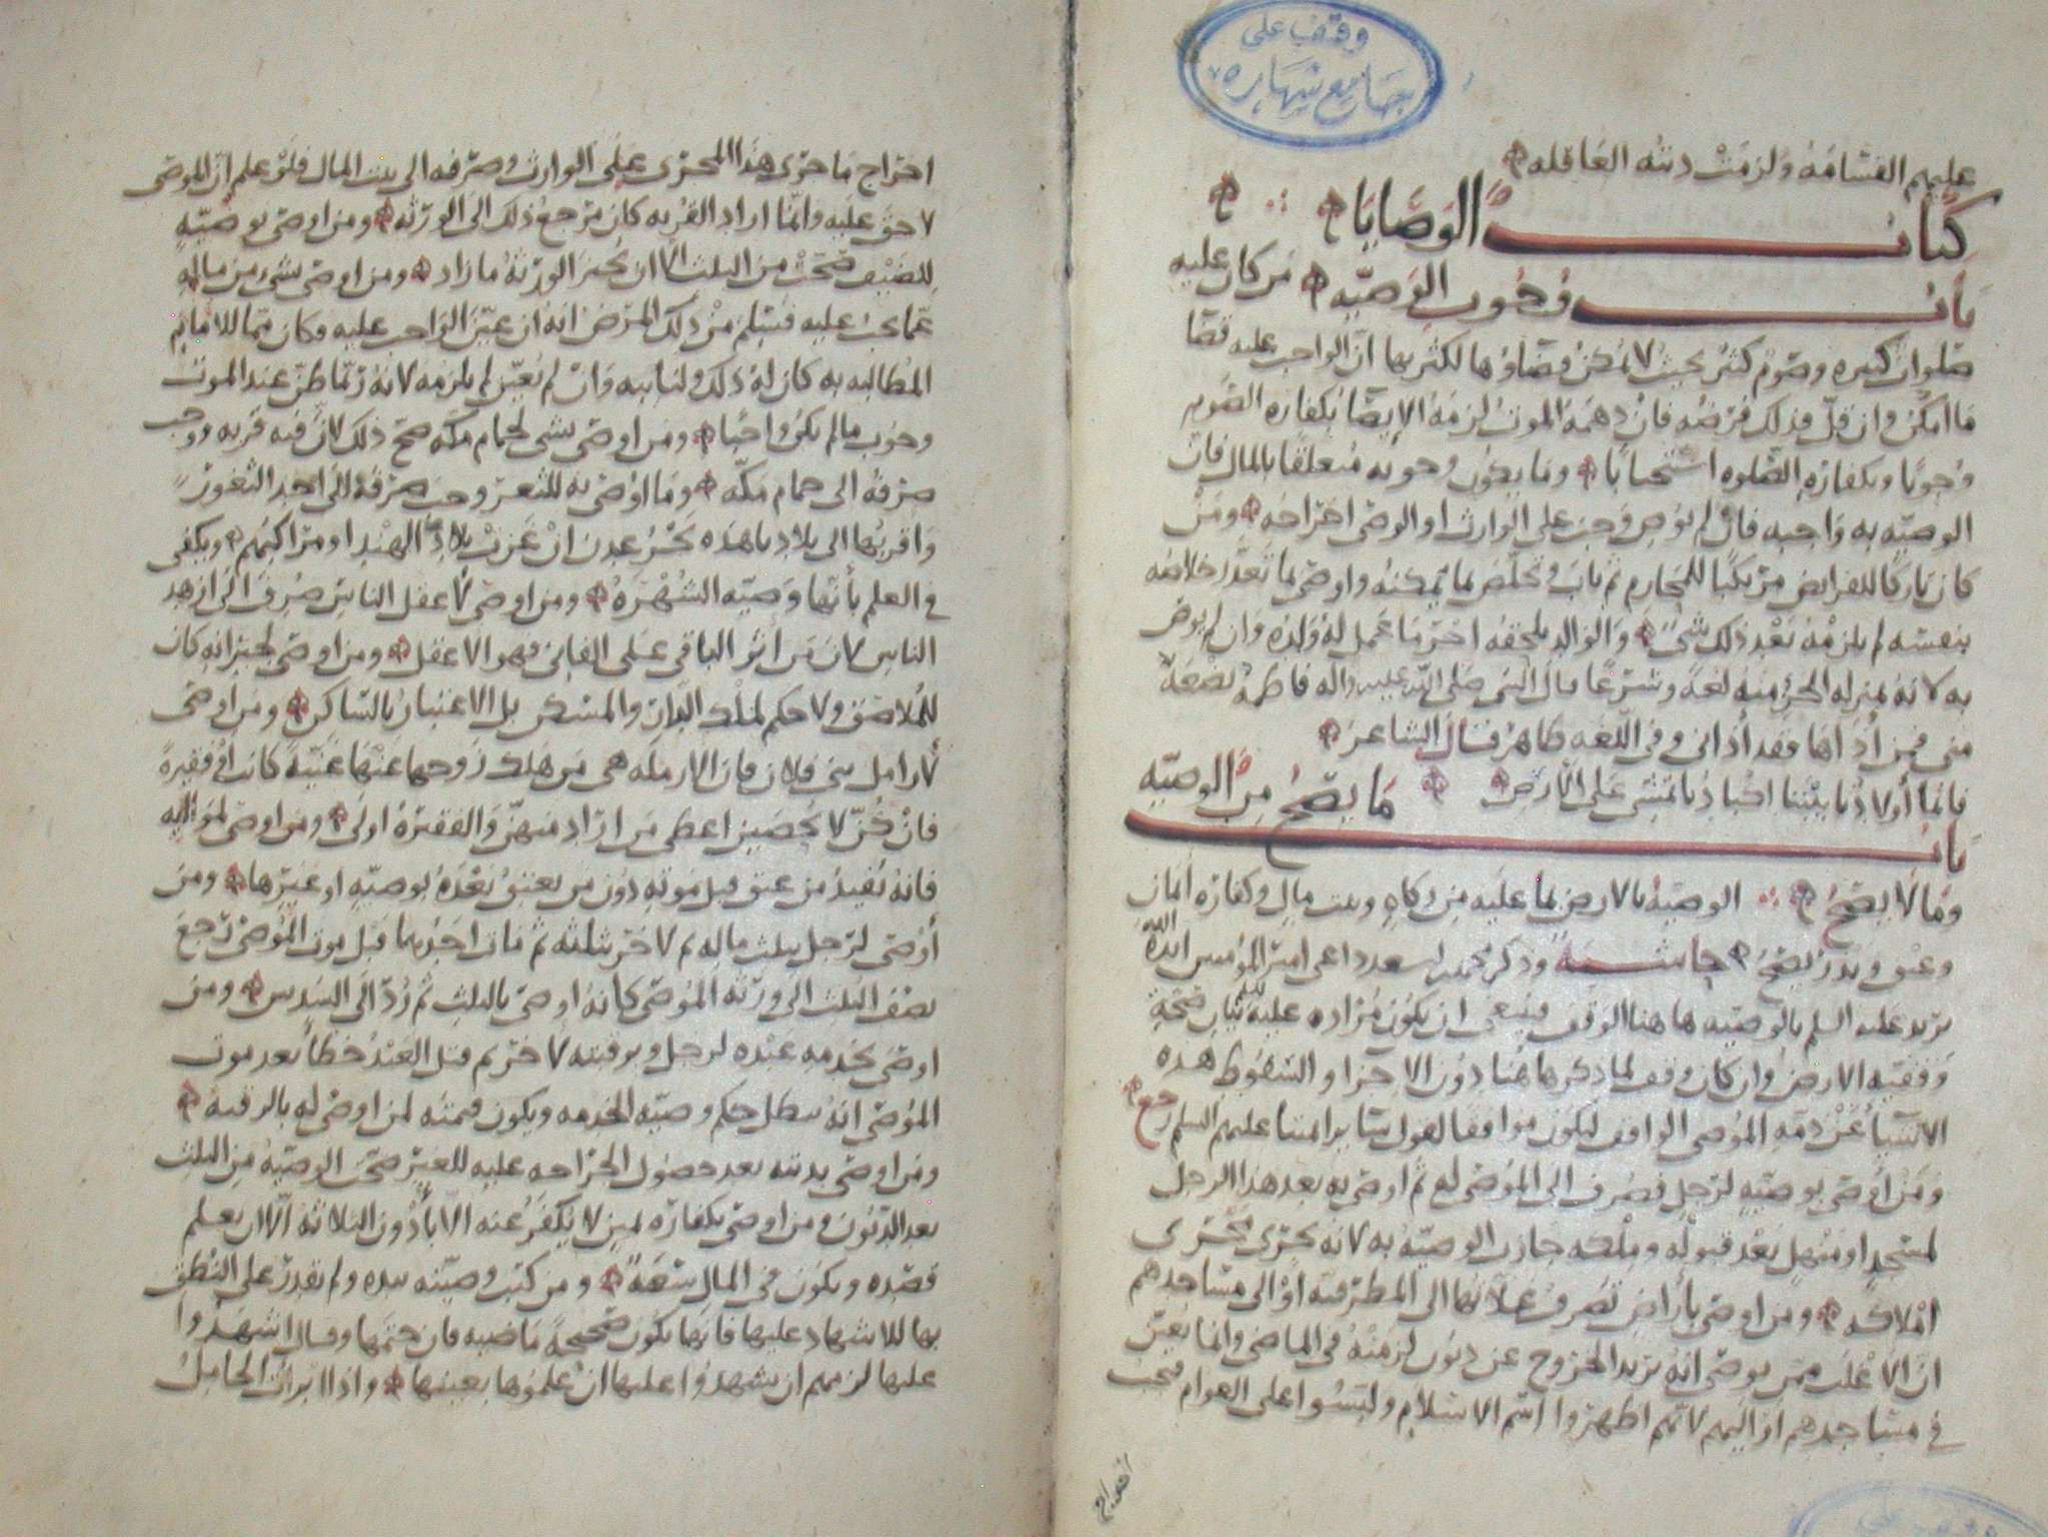 وقف على
جامع شهاره
عليهم القسامة ولزمت ديته العاقله
كتاب الوصايا
باب وجوب الوصيّه من كان عليه
صلوات كثيره وصوم كثير بحيث لا يمكن قضاؤها لكثرتها انّ الواجب عليه قضا
ما امكن وان قلّ فذلك فرضه فان دهمه الموت لزمه الايصا بكفاره الصوم
وجوبًا وبكفاره الصلوه استحبابًا وما يكون وجوبه متعلقًا بالمال فان
الوصيّه به واجبه فان لم يوص وجب على الوارث او الوصى اخراجه ومن
كان تاركًا للفرايض مرتكبًا للمحارم ثم تاب وتخلّص بما يمكنه واوصى بما تعذّر خلاصه
بنفسه لم يلزمه بعد ذلك شىً والوالد يلحقه اجر ما عمل له ولده وان لم يوص
به لانه بمنزله الجزء منه لغة وشرعًا قال النبى صلى الله عليه واله فاطمة بضعة
منى فمن أذاها فقد أذانى وفى اللغه ظاهر قال الشاعر
فانما أولادنا بيننا اكبادنا تمشى على الارض
باب ما يصحّ من الوصيّه
وما لا يصحّ الوصيّه بالارض لما عليه من زكاه وبيت مال وكفاره أيمان
وعتق ونذر يصحّ حاشية وذكر محمد بن اسعد داعى امير المؤمنين ايده الله
يريد عليه السلم بالوصيّه ها هنا الوقف فينبغى ان يكون مُراده عليه السلم بيان صحّة
وقفيه الارض وان كان وقف لما ذكر هاهنا دون الاجزا والسقوط هذه
الاشيا عن ذمّه الموصى الواقف ليكون موافقا لقول ساير ايمتنا عليهم السلم رجع
ومن أوصى بوصيّه لرجل فصرف الى الموصى له ثم اوصى به بعد هذا الرجل
لمسجد او منهل بعد قبوله وملكه جازت الوصيّه به لانه يجرى مجرى
املاكه ومن اوصى بأراض تصرف غلاتها الى المطرفيه او الى مساجدهم
انّ الاغلب ممن يوصى انه يريد الخروج عن ديون لزمته فى الماضى وانما يعيّن
فى مساجدهم او اليهم لانّهم اظهروا اسم الاسلام ولبسوا على العوام فيجب
اخراج
اخراج ما جرى هذا المجرى على الوارث وصرفه الى بيت المال فلو علم انّ الموصى
لا حق عليه وانّما اراد القربه كان مرجع ذلك الى الورثه ومن اوصى بوصيّه
للضيف صحّت من الثلث الا ان يجيز الورثة ما زاد ومن اوصى بشىء من ماله
عما يجب عليه فسلم من ذلك المرض انه ان عيّن الواجب عليه وكان ممّا للامام
المطالبه به كان له ذلك ولنايبه وان لم يعيّن لم يلزمه لانه ربّما ظنّ عند الموت
وجوب ما لم يكن واجبا ومن اوصى بشى لحمام مكّه صحّ ذلك لانّ فيه قربه ووجب
صرفه الى حمام مكّه وما اوصى به للثغر وجب صرفه الى احد الثغور
واقربها الى بلادنا هذه بحر عدن ان غزت بلاد الهند او مراكبهم ويكفى
فى العلم بأنّها وصيّه الشهره ومن اوصى لاعقل الناس صرف الى ازهد
الناس لان من أثر الباقى على الفانى فهو الاعقل ومن اوصى لجيرانه كان
للملاصق ولا حكم لملك الدار والمسكن بل الاعتبار بالساكن ومن اوصى
لأرامل بنى فلان فان الارمله هى من هلك زوجها عنها غنيّة كانت او فقيرة
فان كنّ لا يحصين اعطى من اراد منهنّ والفقيرة اولى ومن اوصى لمواليه
فانه يُفيد من عتق قبل موته دون من يعتق بعده بوصيّه او غيرها ومن
أوصى لرجل بثلث ماله ثم لاخر بثلثه ثم مات احدهما قبل موت الموصى رجع
نصف الثلث الى ورثه الموصى كانه اوصى بالثلث ثم رُدّ الى السدس ومن
اوصى بخدمه عبده لرجل وبرقبته لاخر ثم قتل العبد خطأ بعد موت
الموصى انه يبطل حكم وصيّه الخدمه ويكون قيمته لمن اوصى له بالرقبه
ومن اوصى بديته بعد حصول الجراحه عليه للغير صحّت الوصيّه من الثلث
بعد الديون ومن اوصى بكفاره يمين لا يكفر عنه الا بأدون الثلاثه الّا ان يعلم
قصده ويكون فى المال سعة ومن كتب وصيّته بيده ولم يقدر على النطق
بها للاشهاد عليها فانها تكون صحيحة ماضيه فان ختمها وقال اشهدوا
عليها لزمهم ان يشهدوا عليها ان علموها بعينها واذا ابرأت الحامل